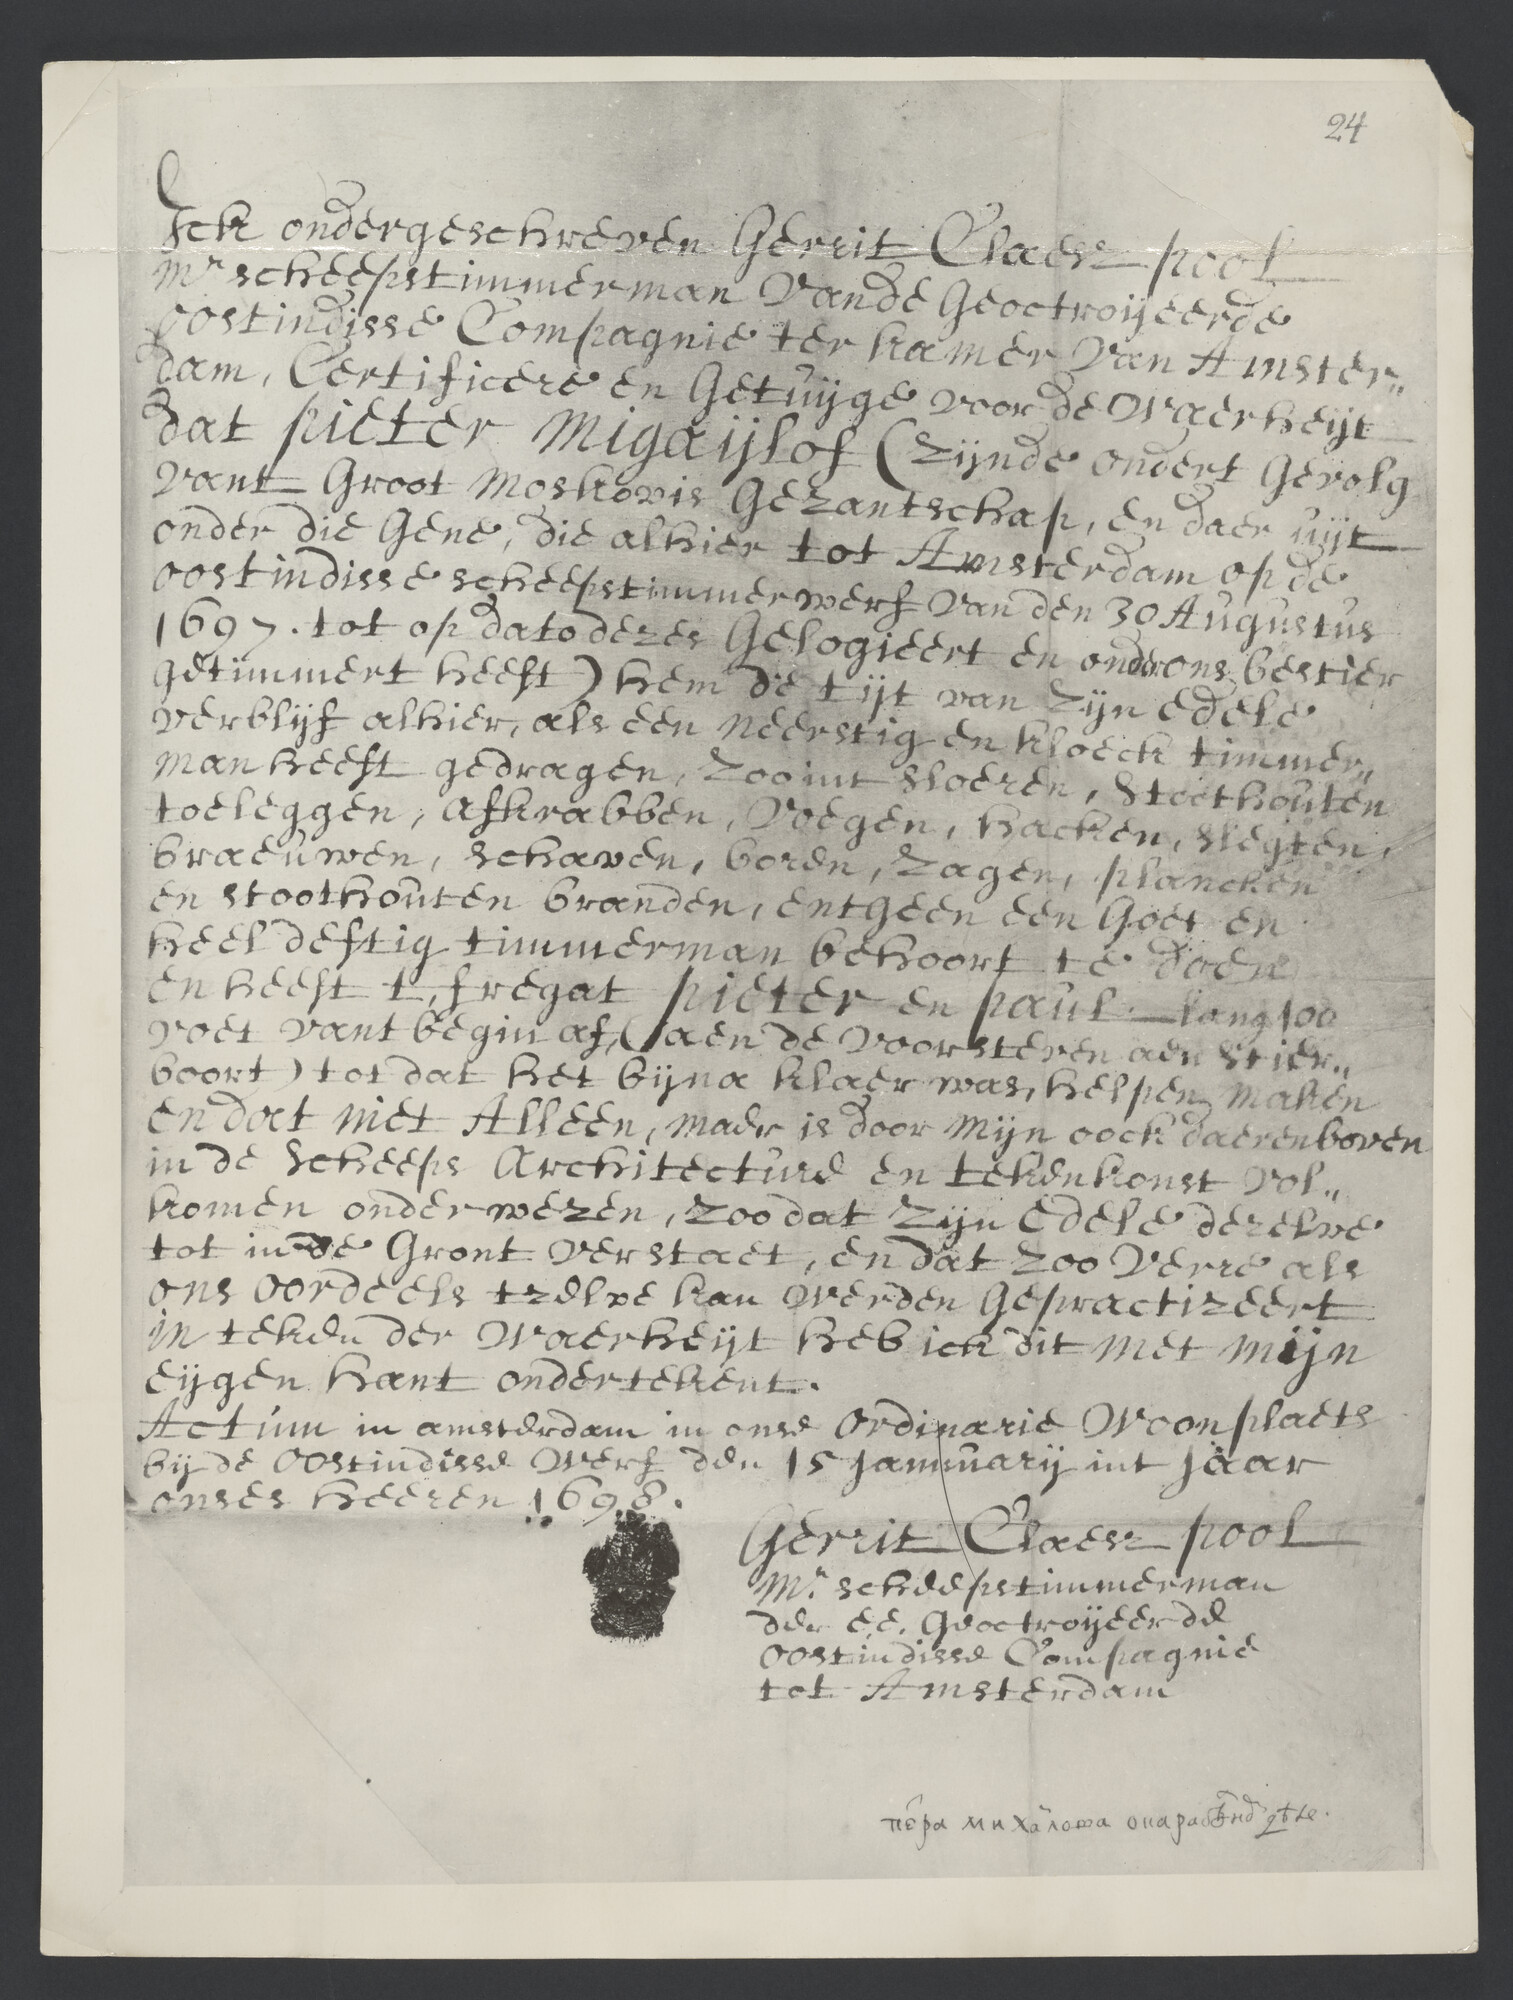 24
Ick ondergeschreven Gerrit Claesz pool
Mr scheepstimmerman Vande Geoctroijeerde
oostindisse Compagnie ter kamer van Amster„
dam, Certificere en Getuijge voor de Waerheijt
dat pieter Migaijlof (zijnde ondert Gevolg
vant Groot Moskovis Gezantschap, en daer uijt
onder die Gene, die alhier tot Amsterdam op de
oostindisse scheepstimmerwerf van den 30 Augustus
1697. tot op dato dezes Gelogieert en onder ons bestier
getimmert heeft) hem de tijt van zijn edele
verblijf alhier, als een neerstig en kloeck timmer„
man heeft gedragen, zoo int vloeren, stoothouten
toeleggen, afkrabben, voegen, hacken, slegten,
braeuwen, schaven, boren, zagen, plancken
en stoothouten branden, entgeen een Goet en
heel deftig timmerman behoort te doen
en heeft t, fregat pieter en paul lang 100
voet vant begin af, (aen de voorsteven aen stier„
boort) tot dat het bijna klaer was, helpen maken
en dat niet Alleen, maer is door mijn oock daerenboven
in de scheeps Architecture en tekenkonst vol„
komen onderwezen, zoo dat zijn edele dezelve
tot in de Gront verstaet, en dat zoo verre als
ons oordeels tzelve kan werden Gepractizeert
in teken der Waerheijt heb ick dit met mijn
eijgen hant ondertekent.
Actum in amsterdam in onse ordinarie woonplaets
bij de oostindisse werf den 15 januarij int jaar
onses heeren 1698.
Gerrit Claesz pool
Mr. scheepstimmerman
der ee. Geoctroijeerde
oostindisse Compagnie
tot Amsterdam
пера михалова